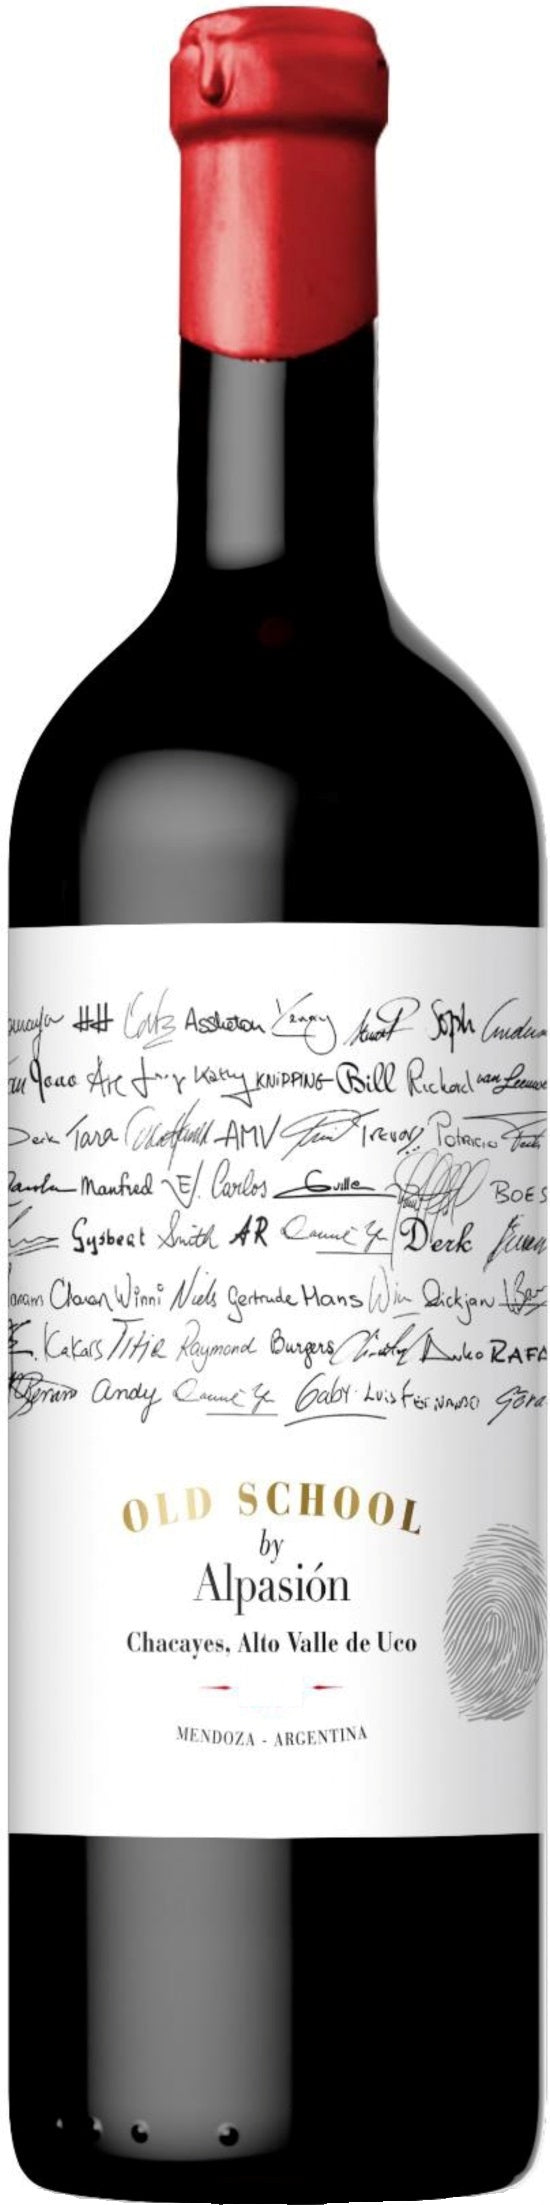 ## Assheton Yenny Stuart Soph
Joao Arc Kathy KNIPPING Bill Richard van Leeuwe
Derk Tara AMV TREVOR Patricio
Manfred EJ. Carlos Guille BOES
Gysbert Smith AR Derk
Winni Niels Gertrude Hans Wim Dickjan
Kakars Titia Raymond Burgers RAFA
andy Gaby LUIS FERNANDO
OLD SCHOOL
by
Alpasión
Chacayes, Alto Valle de Uco
MENDOZA - ARGENTINA